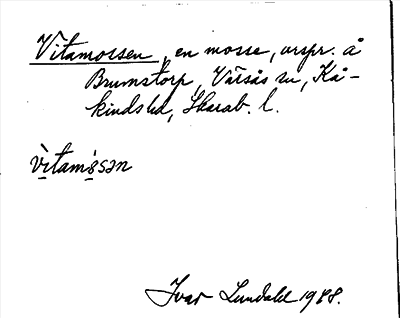 Vitamossen, en mosse, urspr. å
Brumstorp, Värsås sn, Kå-
kinds hd, Skarab. l.
vìtamòsən
Ivar Lundahl 1988.